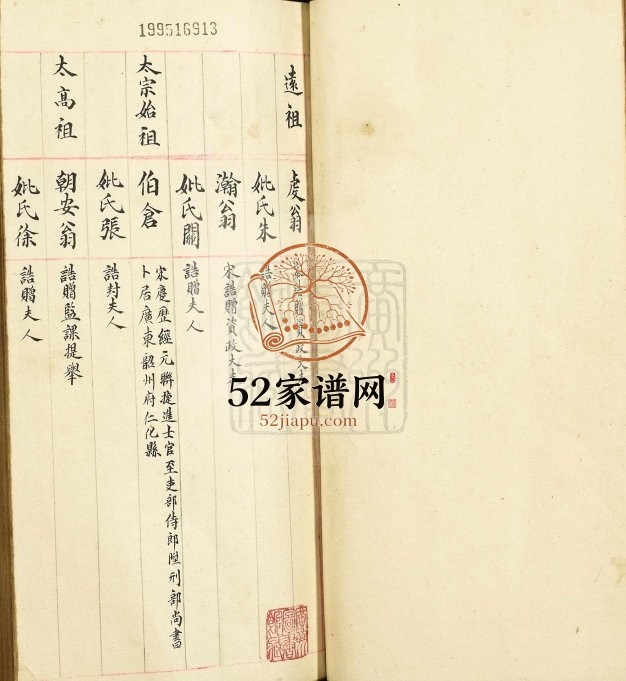 199516913
遠祖
虔翁
贈資政大夫
妣氏朱
誥贈夫人
瀚翁
宋誥贈資政大夫
妣氏關
誥贈夫人
太宗始祖
伯倉
宋慶歷經元聯捷進士官至吏部侍郎陞刑部尚書
卜居廣東韶州府仁化縣
妣氏張
誥封夫人
太高祖
朝安翁
誥贈監課提舉
妣氏徐
誥贈夫人
52家谱网
52jiapu.com